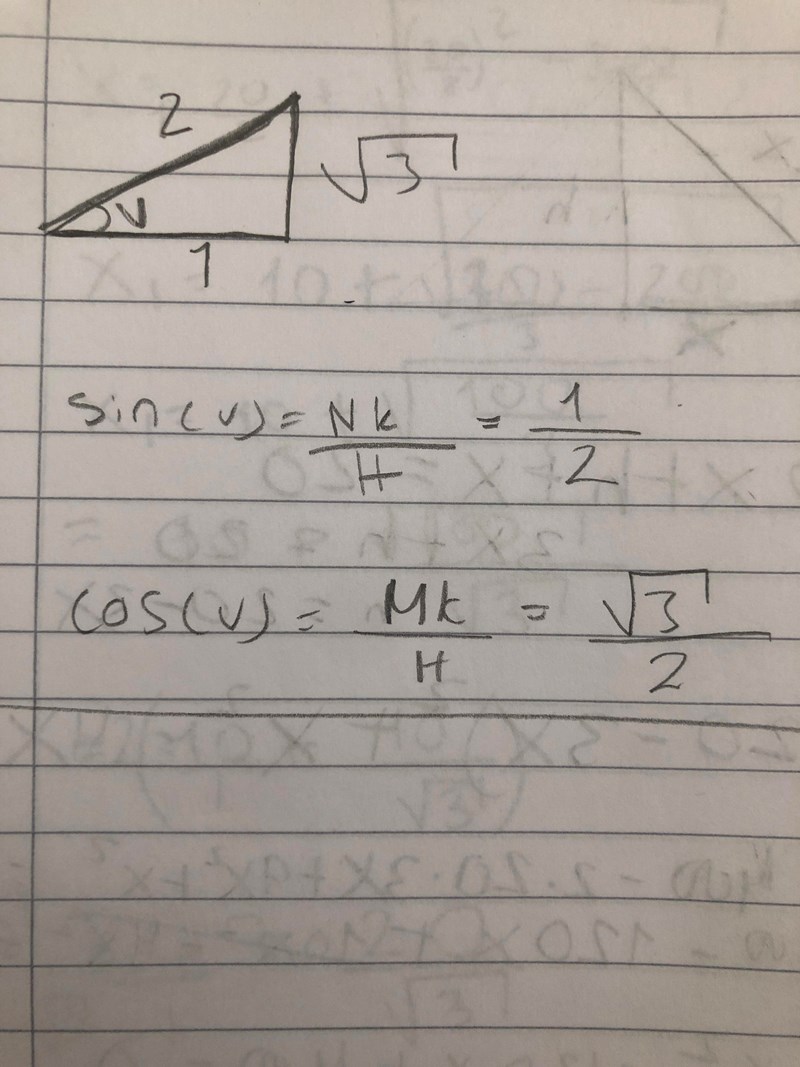 2
√3
v
1
sin(v) = Nk/H = 1/2
cos(v) = Mk/H = √3/2